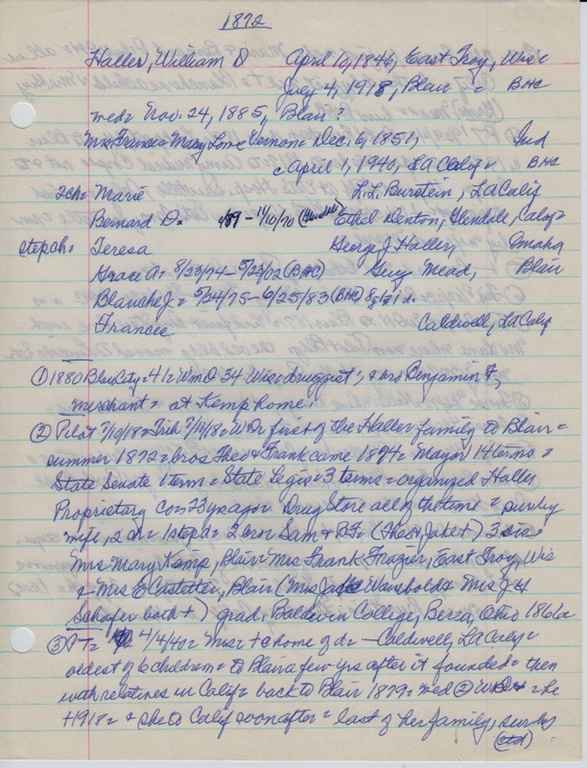 1872
Haller, William D April 10, 1846, East Troy, Wisc
July 4, 1918, Blair = BHC
med= Nov. 24, 1885, Blair?
Mrs Frances Mary Lowe Vernon= Dec. 6, 1851, Ind
April 1, 1940, LA Calif = BHC
2ch= Marie L.L. Burstein, LA Calif
Bernard D= - 11/10/70 (Glendale) Ethel Denton, Glendale, Calif=
stepch= Teresa George J Haller, Omaha
Grace A= 8/23/74-5/23/02 (BHC) Guy Mead, Blair
Blanche J= 5/24/75-6/25/83 (BHC)
Frances Caldwell, LA Calif
① 1880 Blair City= 41= Wm D 34 Wisc druggist; & bro Benjamin F,
merchant= at Kemp home!
② Pilot 7/10/18= Trib 7/11/18= W D= first of the Haller family to Blair=
summer 1872= bros Theo & Frank came 1874= Mayor 14 terms=
State Senate 1 term= State Legis= 3 terms= organized Haller
Proprietary Co= 23 yrs ago= Drug Store all of the time= surv by
wife, 2 ch= 1 stepd= 2 bro= Sam & BF= (Theo & Jake +) 3 sis=
Mrs Mary Kemp, Blair= Mrs Frank Frazier, East Troy, Wis
& Mrs E Castetter, Blair (Mrs Warsholdx Mrs J H
Schafer both +) grad, Baldwin College, Berea, Ohio 1866
③ PT= 4/4/40= Mrs= + @ home of d= - Caldwell, LA Calif=
oldest of 6 children= to Blair a few yrs after it founded= then
with relatives in Calif= back to Blair 1879= med ② W D = he
+1918= & she to Calif soon after= last of her family, surv by
(ctd)